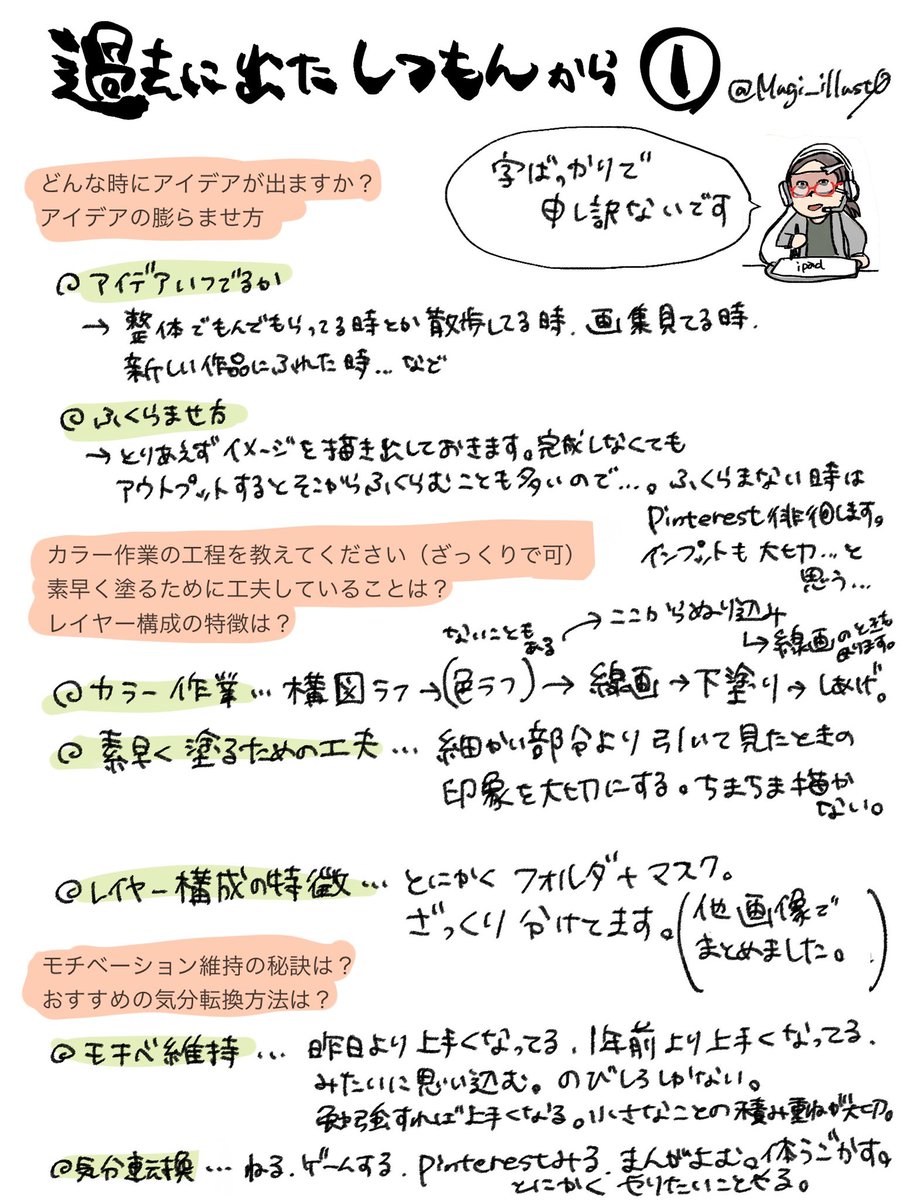 過去に出たしつもんから ①
@Magi_illust0
字ばっかりで
申し訳ないです
ipad
どんな時にアイデアが出ますか？
アイデアの膨らませ方
◎アイデアいつでるか
→ 整体でもんでもらってる時とか散歩してる時、画集見てる時、
新しい作品にふれた時…など
◎ふくらませ方
→とりあえずイメージを描き出しておきます。完成しなくても
アウトプットするとそこからふくらむことも多いので…。ふくらまない時は
Pinterest徘徊します。
インプットも大切…と
思う…
カラー作業の工程を教えてください（ざっくりで可）
素早く塗るために工夫していることは？
レイヤー構成の特徴は？
ないことも
ある
→ここからぬり込み
↳線画のときも
あります。
◎カラー作業… 構図ラフ→(色ラフ)→線画→下塗り→しあげ。
◎素早く塗るための工夫… 細かい部分より引いて見たときの
印象を大切にする。ちまちま描か
ない。
◎レイヤー構成の特徴… とにかくフォルダ+マスク。
ざっくり分けてます。(他画像で
まとめました。)
モチベーション維持の秘訣は？
おすすめの気分転換方法は？
◎モチベ維持… 昨日より上手くなってる、1年前より上手くなってる、
みたいに思い込む。のびしろしかない。
勉強すれば上手くなる。小さなことの積み重ねが大切。
◎気分転換… ねる、ゲームする、pinterestみる、まんがよむ。体うごかす。
とにかくやりたいことやる。